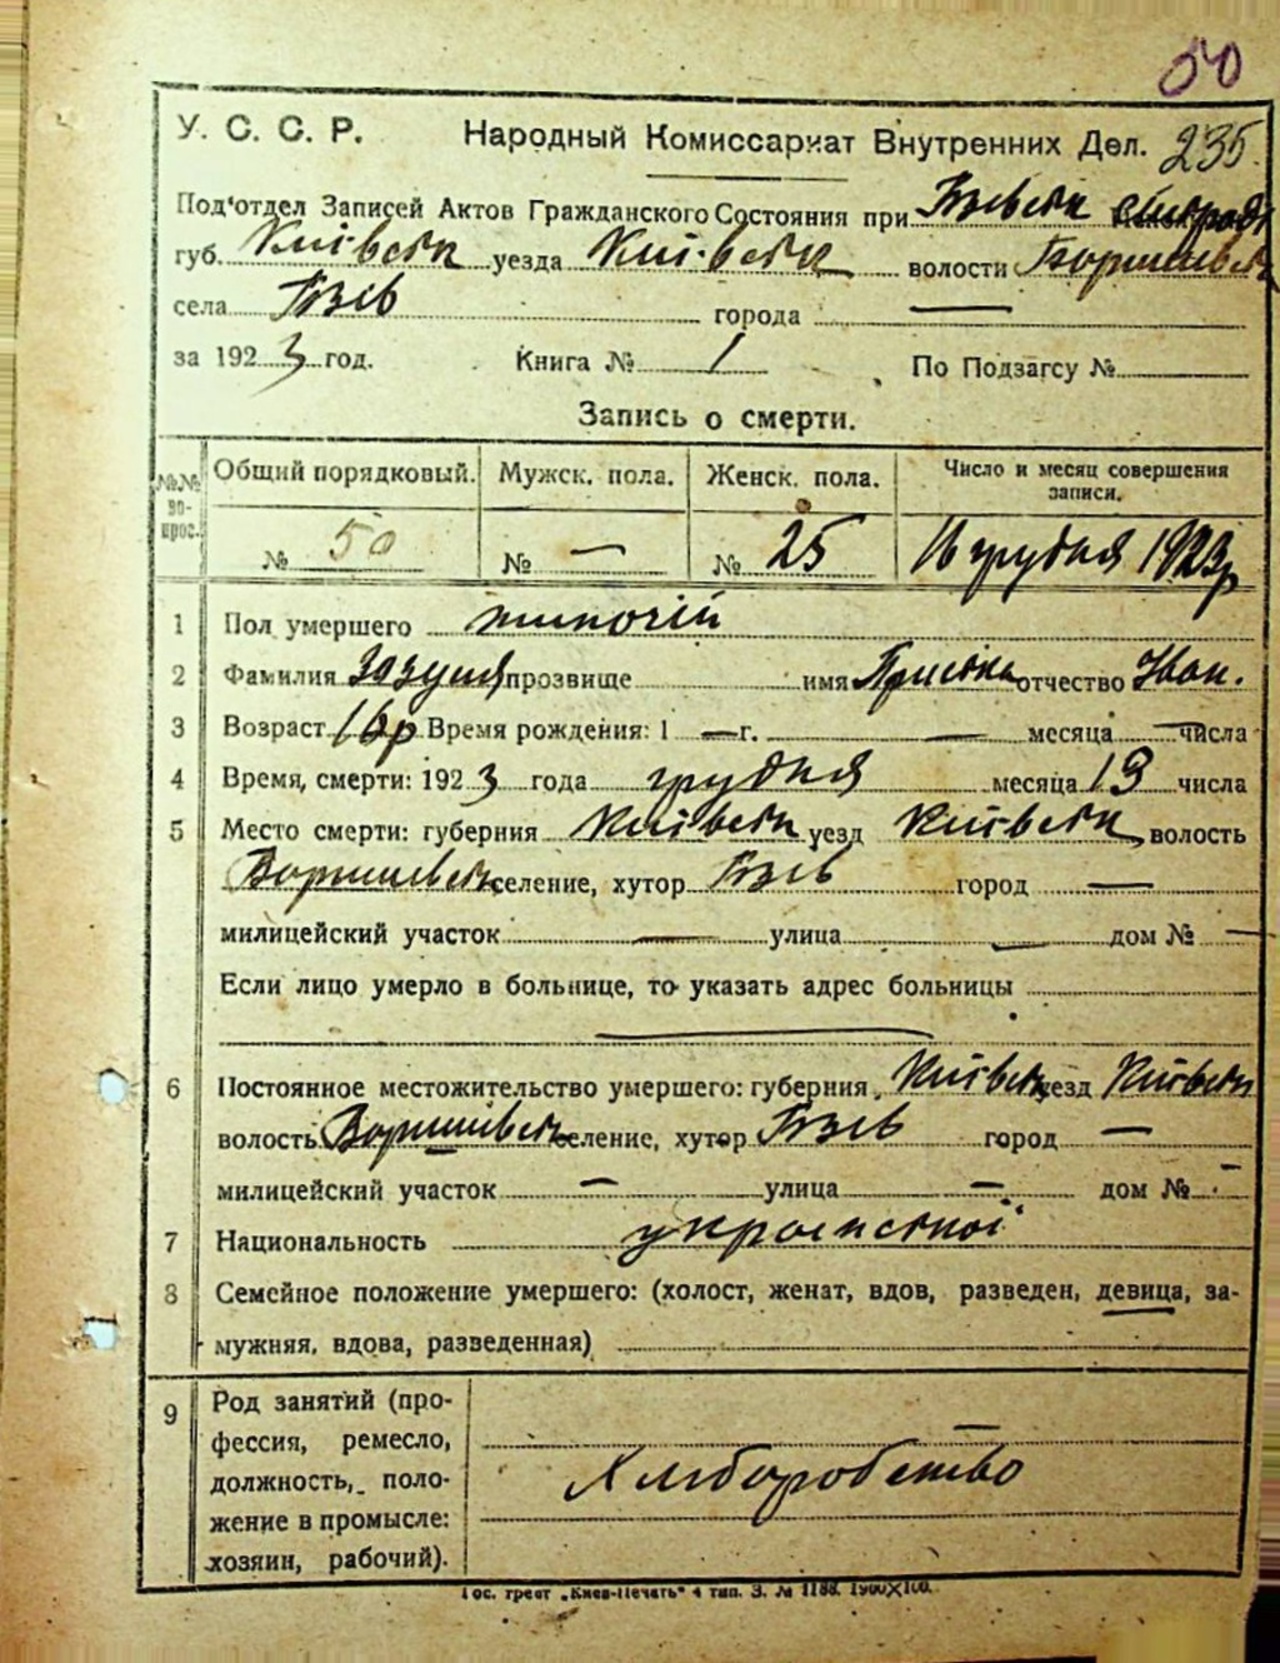 50
У. С. С. Р. Народный Комиссариат Внутренних Дел. 235
Под'отдел Записей Актов Гражданского Состояния при
губ. Київськ уезда Київськ волости
села Бзів города —
за 1923 год. Книга № 1 По Подзагсу №
Запись о смерти.
№№ вопрос. Общий порядковый. Мужск. пола. Женск. пола. Число и месяц совершения
записи.
№ 50 № — № 25 16 грудня 1923 р
1 Пол умершего жиночій
2 Фамилия Зазуля прозвище имя отчество Иван.
3 Возраст 16 р Время рождения: 1 — г. — месяца — числа
4 Время, смерти: 1923 года грудня месяца 13 числа
5 Место смерти: губерния Київськ уезд Київськ волость
селение, хутор Бзів город —
милицейский участок — улица — дом № —
Если лицо умерло в больнице, то указать адрес больницы
6 Постоянное местожительство умершего: губерния Київськ уезд Київськ
волость селение, хутор Бзів город —
милицейский участок — улица — дом № —
7 Национальность украінскоі
8 Семейное положение умершего: (холост, женат, вдов, разведен, девица, за-
мужняя, вдова, разведенная)
9 Род занятий (про-
фессия, ремесло, —
должность, поло- Хліборобство
жение в промысле:
хозяин, рабочий).
Гос. трест „Киев-Печать" 4 тип. З. № 1188. 1900×100.